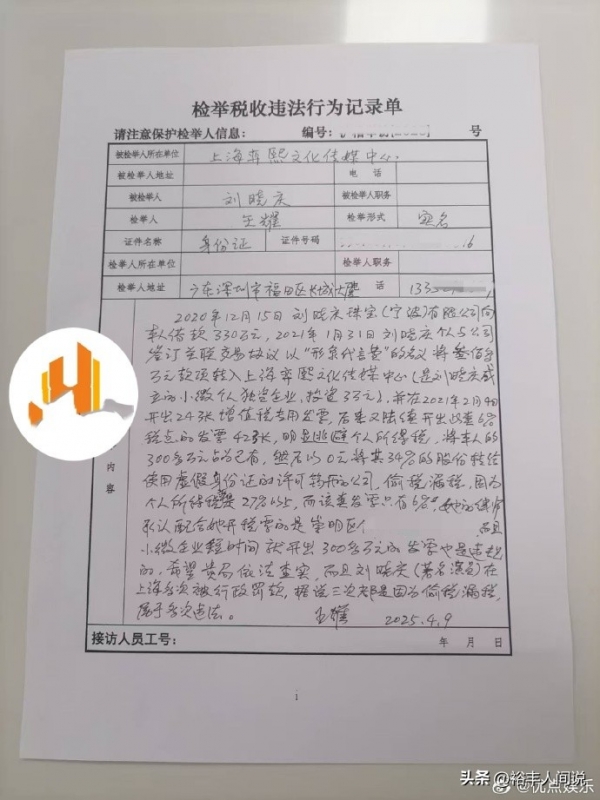 检举税收违法行为记录单
请注意保护检举人信息： 编号： 号
被检举人所在单位 上海弈熙文化传媒中心.
被检举人地址 电 话
被检举人 刘晓庆 被检举人职务
检举人 王耀 检举形式 实名
证件名称 身份证 证件号码 16
检举人所在单位 检举人职务
检举人地址 广东深圳市福田区长城大厦 话 1335
2020年12月15日刘晓庆珠宝(宁波)有限公司向
本人借款330万元，2021年1月31日刘晓庆个人与公司
签订关联交易协议以“形象代言费”的名义将叁佰多
万元款项转入上海弈熙文化传媒中心(是刘晓庆成
立的小微个人独资企业，投资3万元)，并在2021年2月4日
开出24张增值税专用发票，后来又陆续开出此类6%
税点的发票42张，明显逃避个人所得税，将本人的
300多万元占为已有，然后以0元将其34%的股份转给
使用虚假身份证的许可 的公司，偷税漏税，因为
个人所得税是27% 而该类发票只有6%，她的律师
承认配合她开税票的是崇明区 而且
小微企业短时间就开出300多万元的发票也是违规
的，希望贵局依法查实，而且刘晓庆(著名演员)在
上海多次被行政罚款，据说三次都是因为偷税漏税，
属于多次违法。 王耀 2025.4.9
内
容
接访人员工号： 年 月 日
1
头条 @裕丰人间说
@优点娱乐